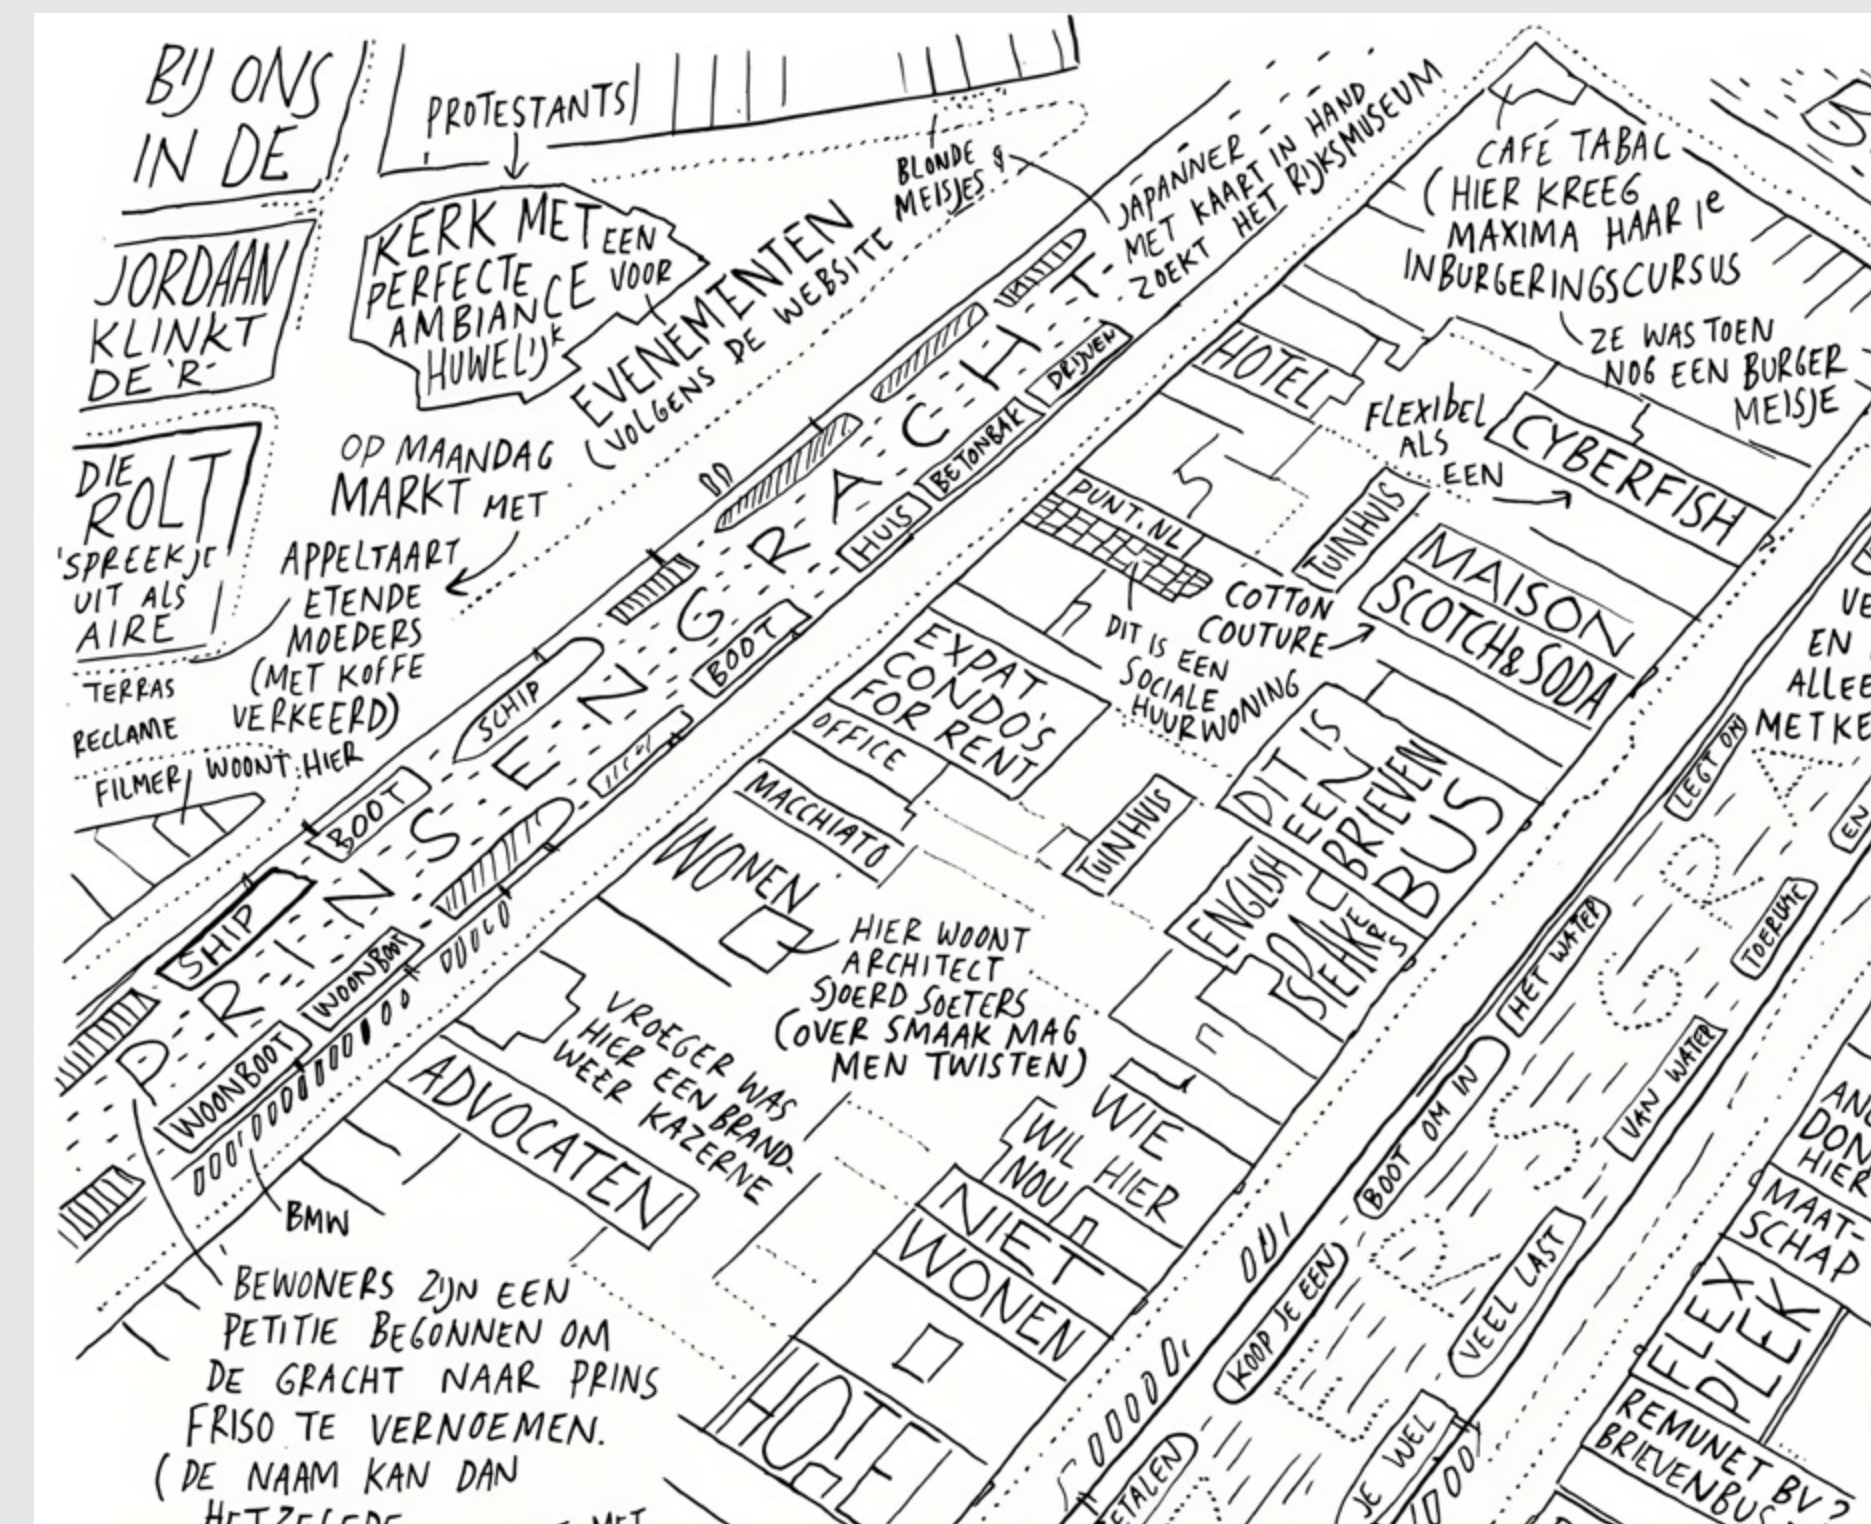 BIJ ONS
IN DE
JORDAAN
KLINKT
DE 'R'
DIE
ROLT
'SPREEK JE
UIT ALS
AIRE
TERRAS
RECLAME
FILMER WOONT HIER
PROTESTANTS
KERK MET EEN
PERFECTE
AMBIANCE VOOR
HUWELIJK
EVENEMENTEN
(VOLGENS DE WEBSITE
BLONDE
MEISJES &
JAPANNER
MET KAART IN HAND
ZOEKT HET RIJKSMUSEUM
OP MAANDAG
MARKT MET
APPELTAART
ETENDE
MOEDERS
(MET KOFFE
VERKEERD)
PRINSENGRACHT
SCHIP
BOOT
SHIP
WOONBOOT
WOONBOOT
BOOT
HUIS
BETONBAK
DRIJVEN
BMW
BEWONERS ZIJN EEN
PETITIE BEGONNEN OM
DE GRACHT NAAR PRINS
FRISO TE VERNOEMEN.
(DE NAAM KAN DAN
HETZELFDE
MET
CAFÉ TABAC
(HIER KREEG
MAXIMA HAAR 1e
INBURGERINGSCURSUS
ZE WAS TOEN
NOG EEN BURGER
MEISJE
HOTEL
FLEXIBEL
ALS
EEN
CYBERFISH
PUNT.NL
TUINHUIS
MAISON
SCOTCH & SODA
COTTON
COUTURE
DIT IS EEN
SOCIALE
HUURWONING
EXPAT
CONDO'S
FOR RENT
OFFICE
MACCHIATO
WONEN
TUINHUIS
DIT IS
EEN
BRIEVEN
BUS
ENGLISH
SPEAKERS
HIER WOONT
ARCHITECT
SJOERD SOETERS
(OVER SMAAK MAG
MEN TWISTEN)
VROEGER WAS
HIER EEN BRAND-
WEER KAZERNE
ADVOCATEN
WIE
WIL HIER
NOU
NIET
WONEN
HOTEL
VE
EN
ALLEE
MET KE
LEGT ON
EN
HET WATER
TOERUIC
BOOT OM IN
VAN WATER
KOOP JE EEN
VEEL LAST
JE WEL
ETALEN
ERSGRA
AN
DON
HIER
MAAT-
SCHAP
FLEX
PLEK
REMUNET BV?
BRIEVENBUS